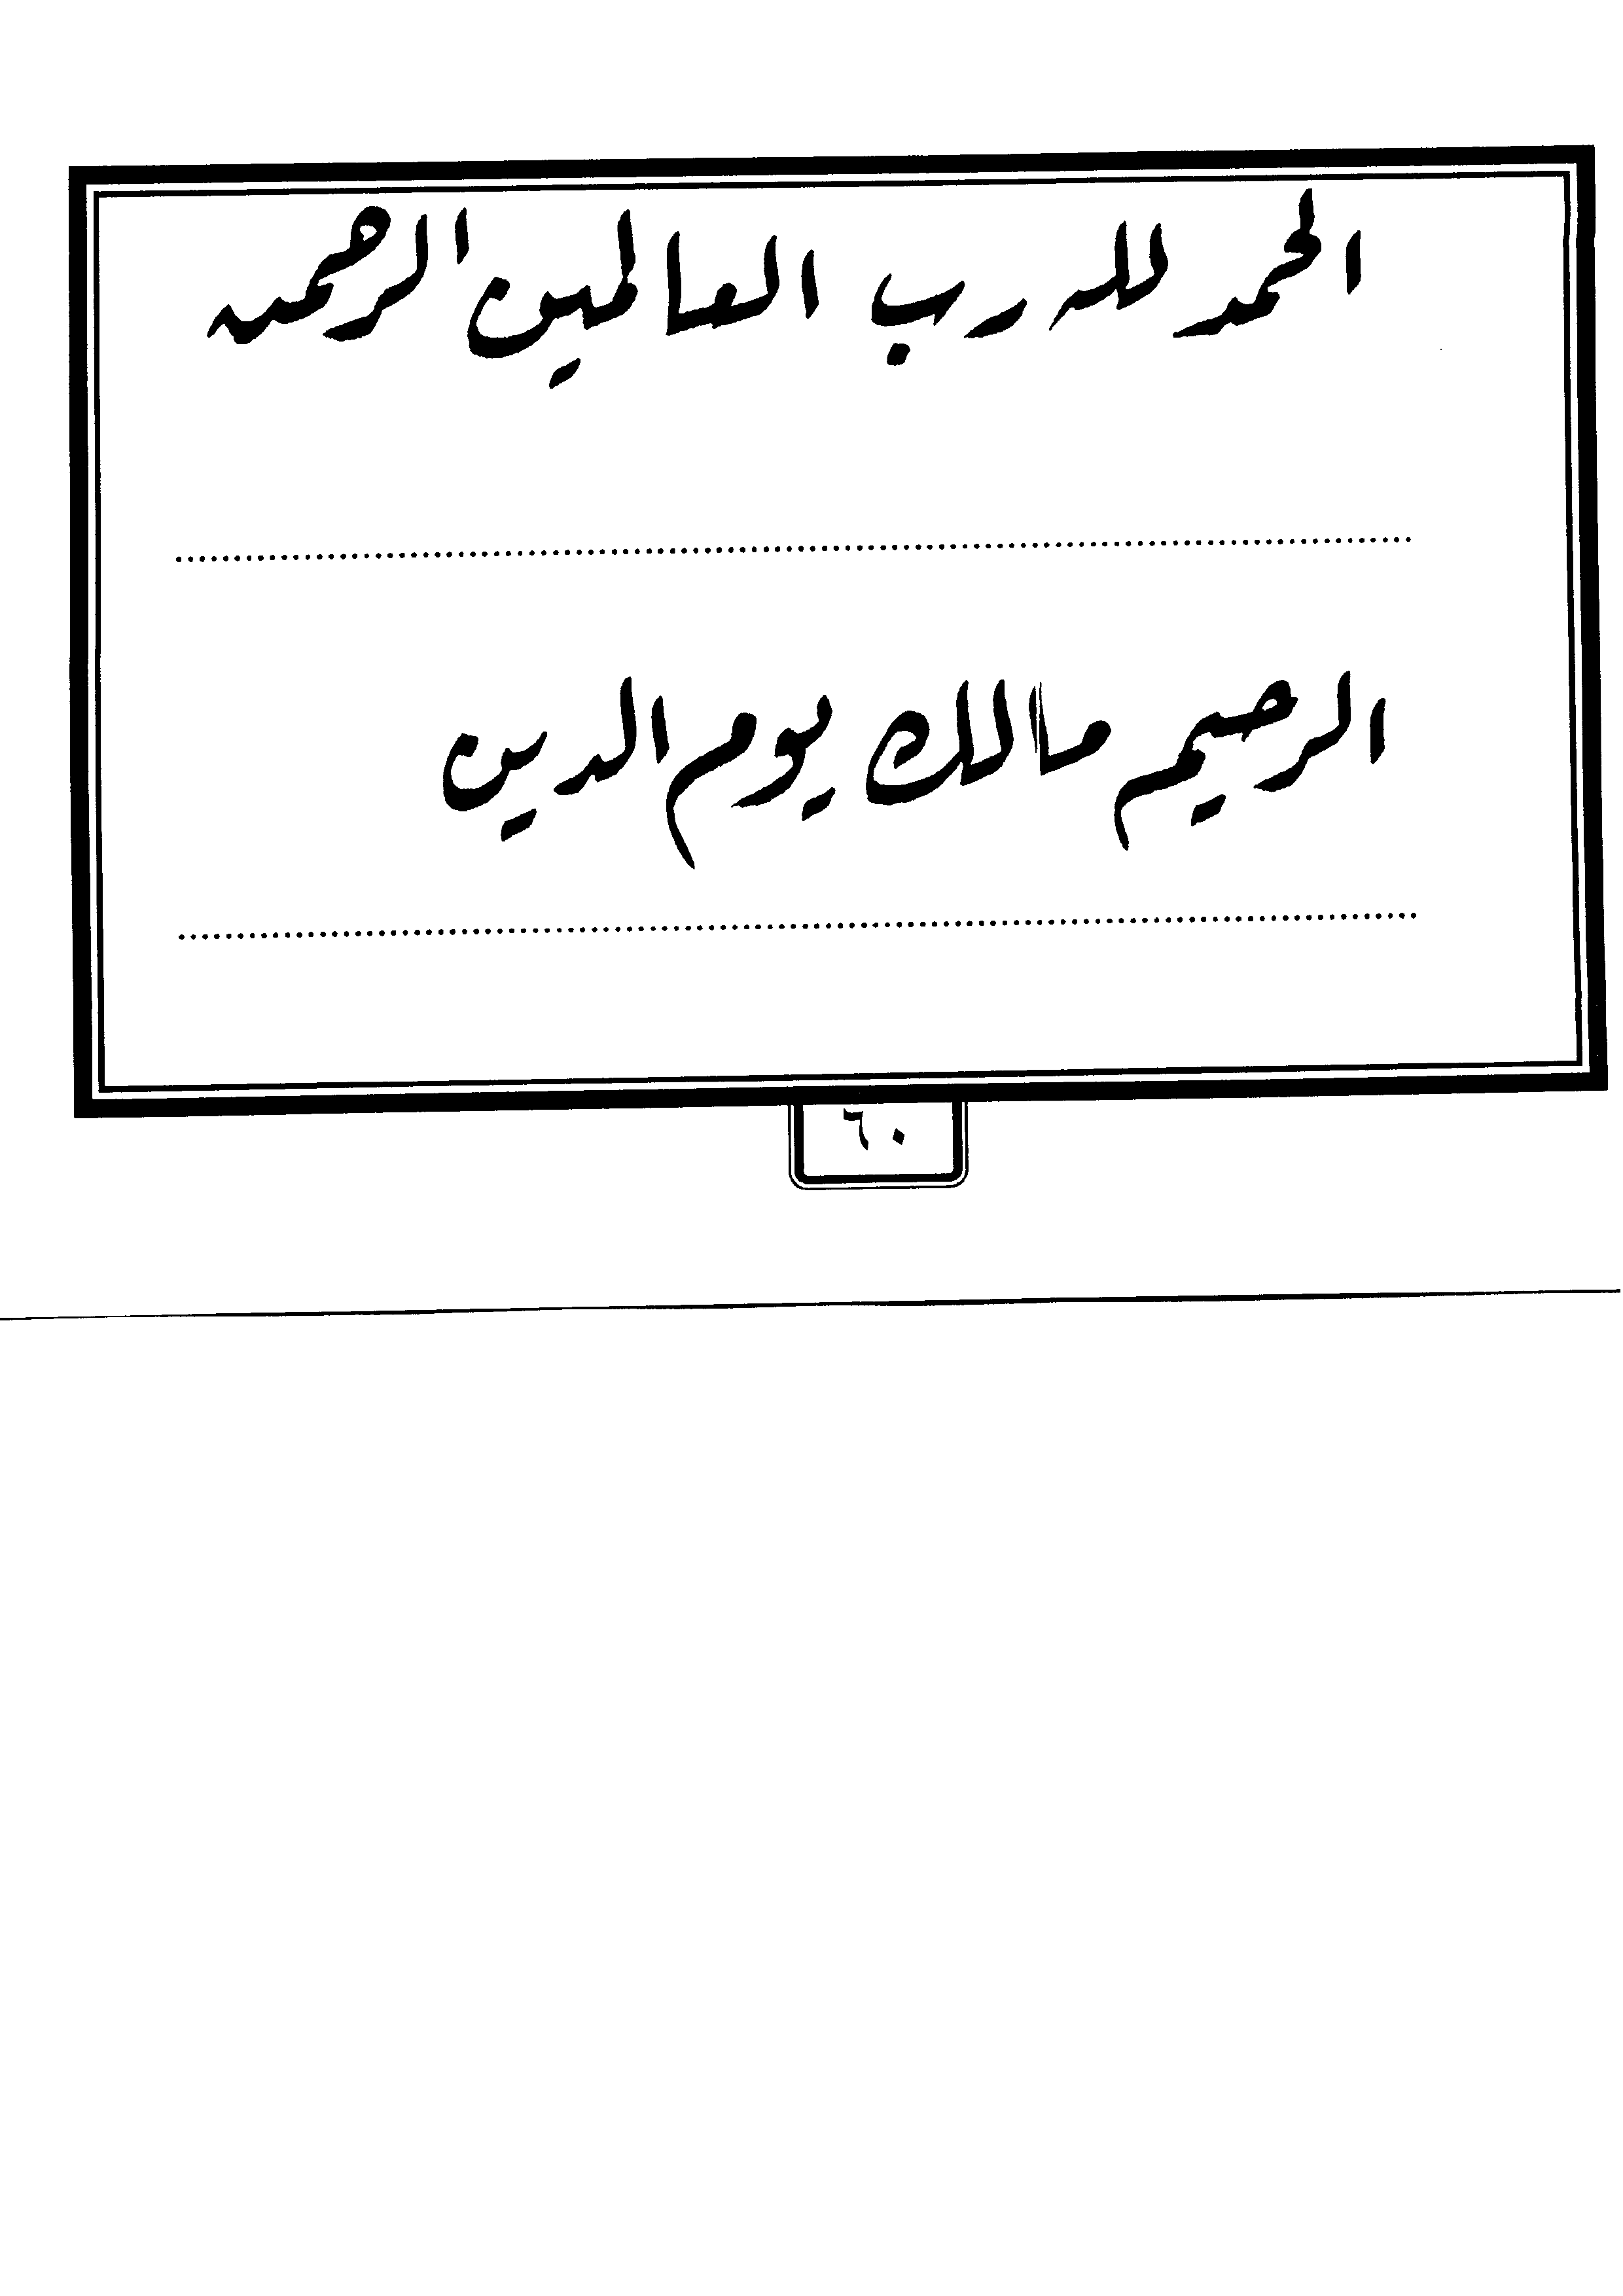 الحمد لله رب العالمين الرحمن
الرحيم مالك يوم الدين
٦٠